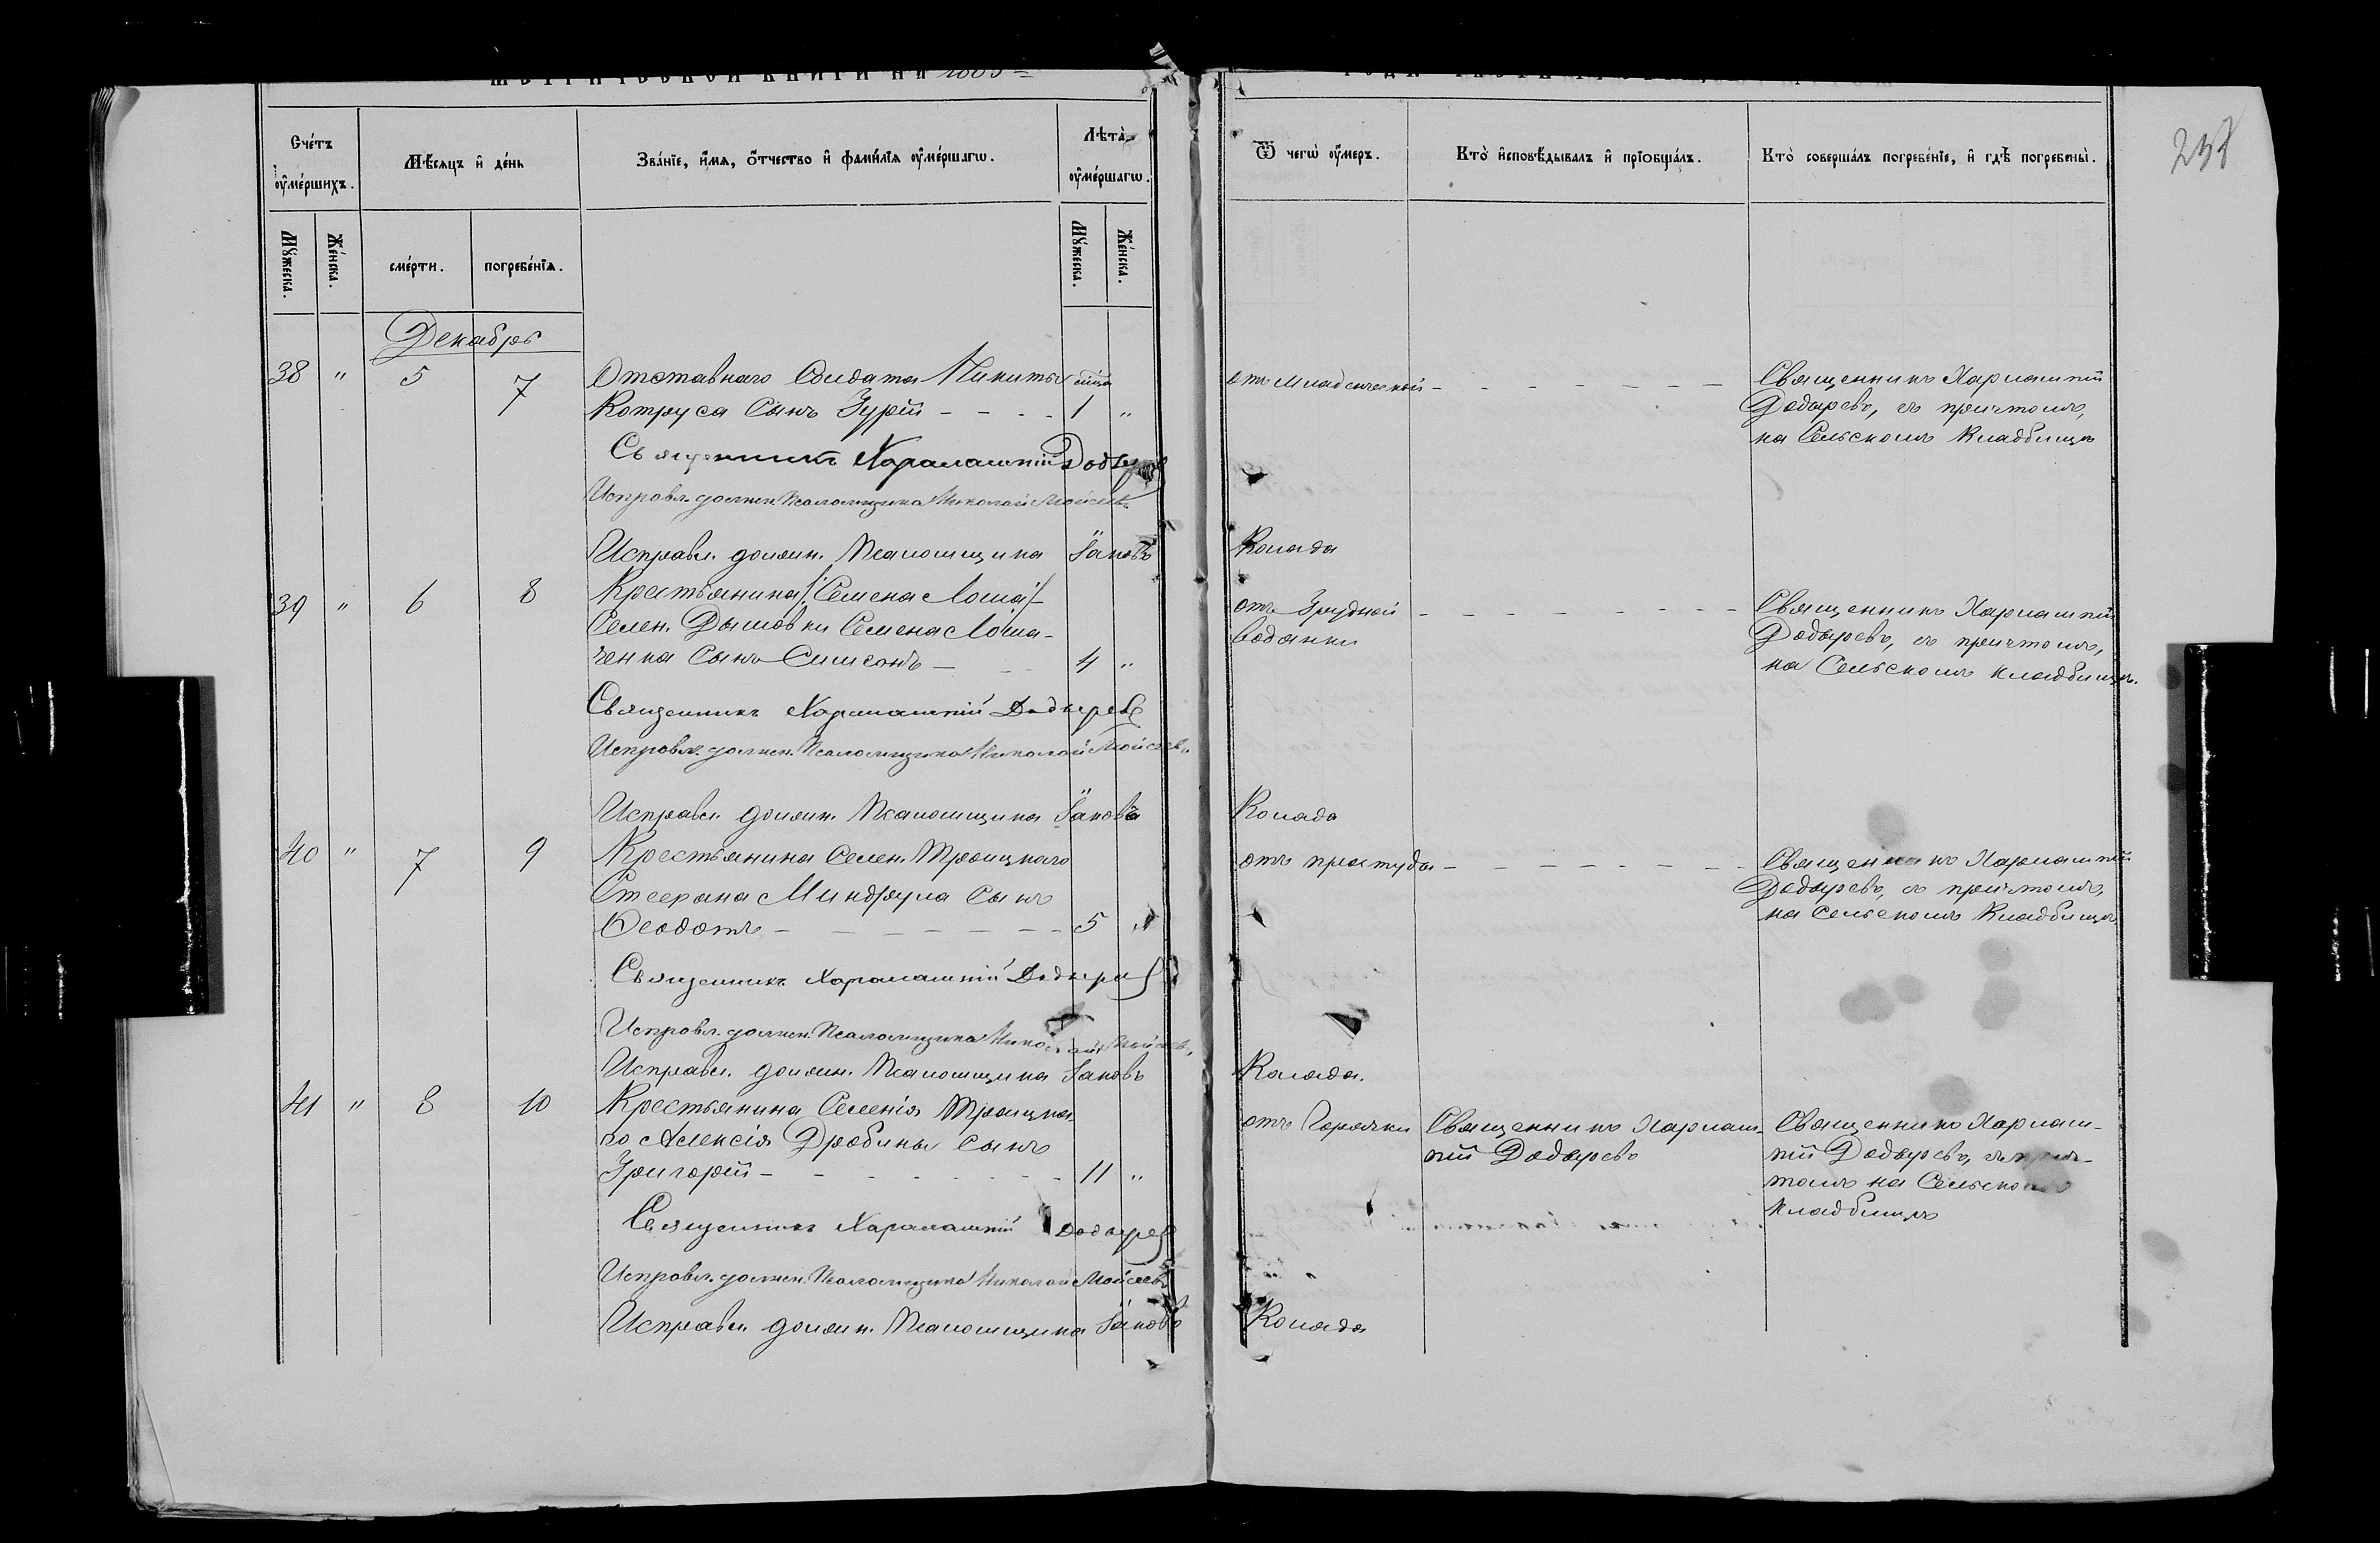 метрической книги на 1885
238
Счéтъ оумéршихъ.
Мѣсяцъ и дéнь
Звáнїе, имя, óтчество и фамилїя оумéршагω.
Лѣта оумéршагω.
Ѿ чегω оумеръ.
Кто исповѣдывалъ и прїобщáлъ.
Кто совершáлъ погребéнїе, и гдѣ погребены.
Мýжеска.
Жéнска.
смéрти.
погребéнїя.
Мýжеска.
Жéнска.
Декабрь
38 " 5 7 Отставнаго Солдата Никиты
Котруса Сынъ Гурій - - - - 1 "
отъ младенческой - - - - - - -
Священникъ Харлампій
Додыревъ, съ причтомъ,
на Сельскомъ кладбищѣ
Священникъ Харалампій
Исправл. должн. Псаломщика Николай Мойсеевъ
Исправл. должн. Псаломщика Іаковъ Колада
39 " 6 8 Крестьянина /: Семена Лоша :/
Селен. Дымовки Семена Лоша-
ченка сынъ Симеонъ - - 4 "
отъ Грудной - - - - - - - -
водянки
Священникъ Харлампій
Додыревъ, съ причтомъ,
на Сельскомъ кладбищѣ.
Священникъ Харалампій Додыревъ
Исправл. должн. Псаломщика Николай Мойсеевъ
Исправл. должн. Псаломщика Іаковъ Колада
40 " 7 9 Крестьянина Селен. Троицкаго
Стефана Миндрула Сынъ
Ѳеодотъ - - - - - - - 5 "
отъ простуды - - - - - - -
Священникъ Харлампій
Додыревъ, съ причтомъ,
на Сельскомъ Кладбищѣ
Священникъ Харалампій Додыревъ
Исправл. должн. Псаломщика Николай Мойсеевъ
Исправл. должн. Псаломщика Іаковъ Колада.
41 " 8 10 Крестьянина Селенія Троицка-
го Алексія Дробины сынъ
Григорій - - - - - - - 11 "
отъ Горячки
Священникъ Харлам-
пій Додыревъ
Священникъ Харлам-
пій Додыревъ, съ прич-
томъ на Сельскомъ
кладбищѣ
Священникъ Харалампій Додыревъ
Исправл. должн. Псаломщика Николай Мойсеевъ
Исправл. должн. Псаломщика Іаковъ Колада